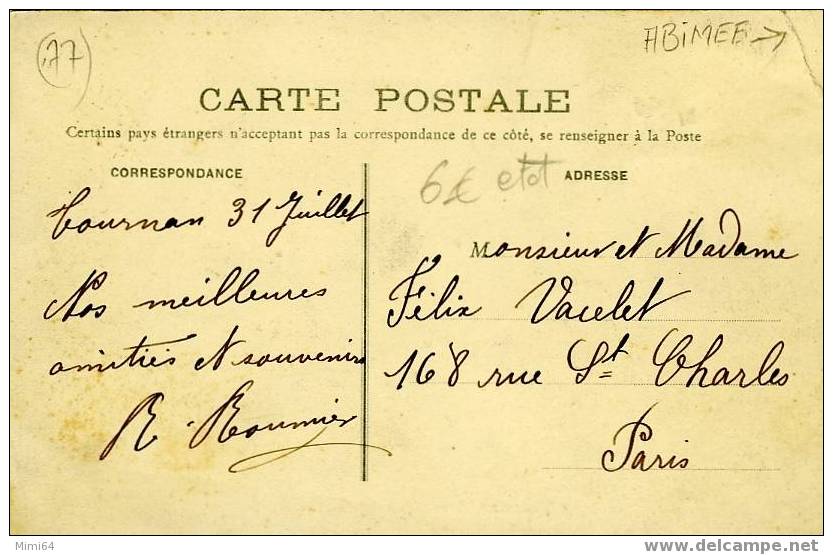 77
ABIMEE →
CARTE POSTALE
Certains pays étrangers n'acceptant pas la correspondance de ce côté, se renseigner à la Poste
CORRESPONDANCE
6€ etat
ADRESSE
Tournan 31 Juillet
Nos meilleures
amitiés et souvenirs
R. Roumier
Monsieur et Madame
Félix Vacelet
168 rue St Charles
Paris
Mimi64
www.delcampe.net